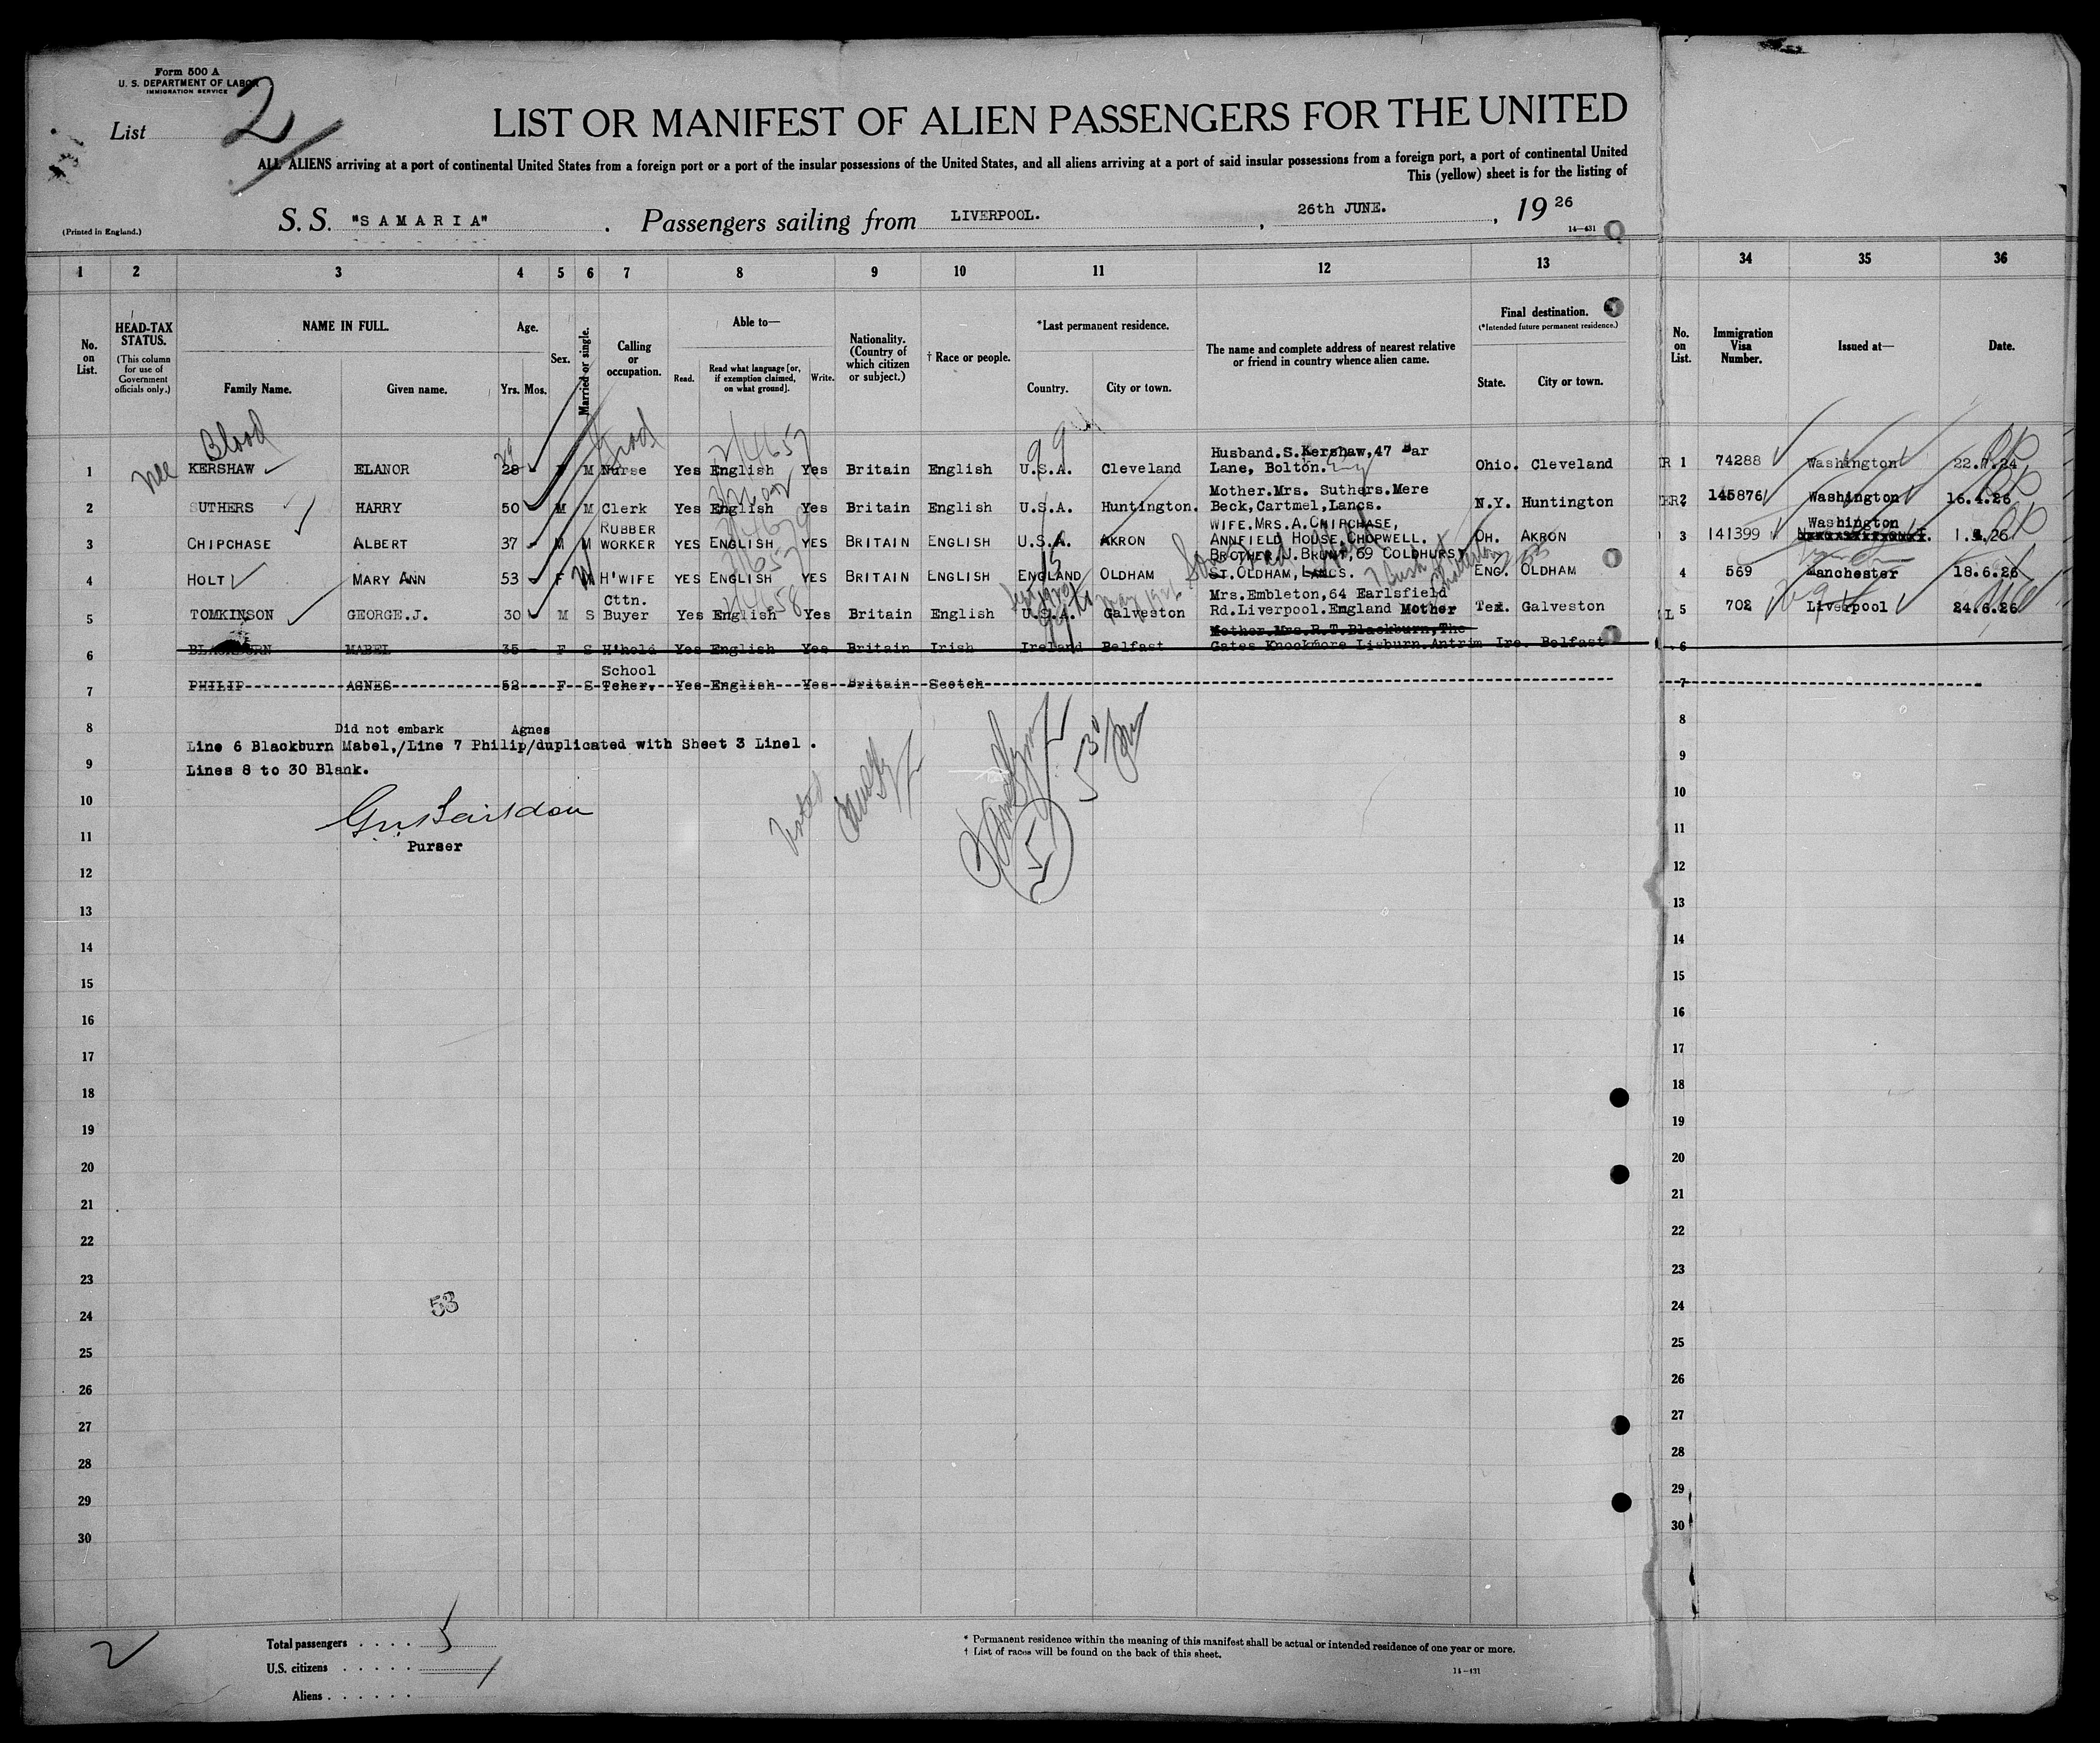 Form 500 A
U. S. DEPARTMENT OF LABOR
IMMIGRATION SERVICE
List 2
LIST OR MANIFEST OF ALIEN PASSENGERS FOR THE UNITED
ALL ALIENS arriving at a port of continental United States from a foreign port or a port of the insular possessions of the United States, and all aliens arriving at a port of said insular possessions from a foreign port, a port of continental United
This (yellow) sheet is for the listing of
(Printed in England.)
S. S. "SAMARIA" . Passengers sailing from LIVERPOOL. , 26th JUNE. , 19 26
14—431
1 2 3 4 5 6 7 8 9 10 11 12 13 34 35 36
No. on List.
HEAD-TAX STATUS.
(This column for use of Government officials only.)
NAME IN FULL.
Family Name. Given name.
Age.
Yrs. Mos.
Sex.
Married or single.
Calling or occupation.
Able to—
Read. Read what language [or, if exemption claimed, on what ground]. Write.
Nationality. (Country of which citizen or subject.)
† Race or people.
*Last permanent residence.
Country. City or town.
The name and complete address of nearest relative or friend in country whence alien came.
Final destination.
(*Intended future permanent residence.)
State. City or town.
No. on List.
Immigration Visa Number.
Issued at—
Date.
nee Blood
1 KERSHAW ELANOR 28 F M Nurse Yes English Yes Britain English U.S.A. Cleveland Husband.S.Kershaw,47 Bar Lane, Bolton. Ohio. Cleveland 1 74288 Washington 22.7.24
2/4657
99
2 SUTHERS HARRY 50 M M Clerk Yes English Yes Britain English U.S.A. Huntington. Mother.Mrs. Suthers.Mere Beck,Cartmel,Lancs. N.Y. Huntington 2 145876 Washington 16.4.26
3 CHIPCHASE ALBERT 37 M M RUBBER WORKER YES ENGLISH YES BRITAIN ENGLISH U.S.A. AKRON WIFE.MRS.A.CHIPCHASE, ANNFIELD HOUSE,CHOPWELL. OH. AKRON 3 141399 Washington
4 HOLT MARY ANN 53 F H'WIFE YES ENGLISH YES BRITAIN ENGLISH ENGLAND OLDHAM BROTHER.J.BRUNT,69 COLDHURST ST.OLDHAM,LANCS. ENG. OLDHAM 4 569 Manchester 18.6.26
5 TOMKINSON GEORGE.J. 30 M S Cttn. Buyer Yes English Yes Britain English U.S.A. Galveston Mrs.Embleton,64 Earlsfield Rd.Liverpool.England Mother Tex. Galveston 5 702 Liverpool 24.6.26
6 BLACKBURN MABEL 35 F S H'hold Yes English Yes Britain Irish Ireland Belfast Mother.Mrs.R.T.Blackburn,The Gates Knockmore Lisburn.Antrim Ire. Belfast 6
7 PHILIP AGNES 52 F S School Tcher. Yes English Yes Britain Scotch 7
Did not embark Agnes
Line 6 Blackburn Mabel,/Line 7 Philip/duplicated with Sheet 3 Line1 .
Lines 8 to 30 Blank.
Purser
5
8 8
9 9
10 10
11 11
12 12
13 13
14 14
15 15
16 16
17 17
18 18
19 19
20 20
21 21
22 22
23 23
53
24 24
25 25
26 26
27 27
28 28
29 29
30 30
2
Total passengers . . . . 5
U.S. citizens . . . . .
Aliens . . . . . .
* Permanent residence within the meaning of this manifest shall be actual or intended residence of one year or more.
† List of races will be found on the back of this sheet.
14—431